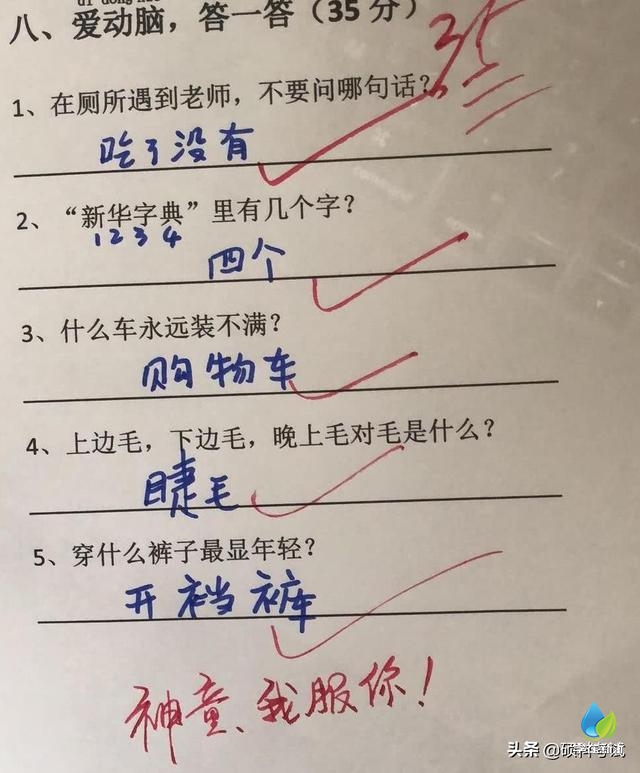 八、爱动脑，答一答（35分）
35
1、在厕所遇到老师，不要问哪句话？
吃了没有
2、“新华字典”里有几个字？
1 2 3 4
四个
3、什么车永远装不满？
购物车
4、上边毛，下边毛，晚上毛对毛是什么？
睫毛
5、穿什么裤子最显年轻？
开裆裤
神童、我服你！
头条@硕